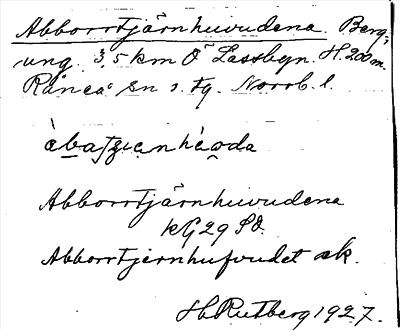 Abborrtjärnhuvudena. Berg,
ung. 3,5 km Ö Lassbyn. H. 200 m.
Råneå sn o. tg. Norrb. l.
Abborrtjärnhuvudena
kG 29 SO.
Abborrtjernhufvudet sk.
H. Rutberg 1927.